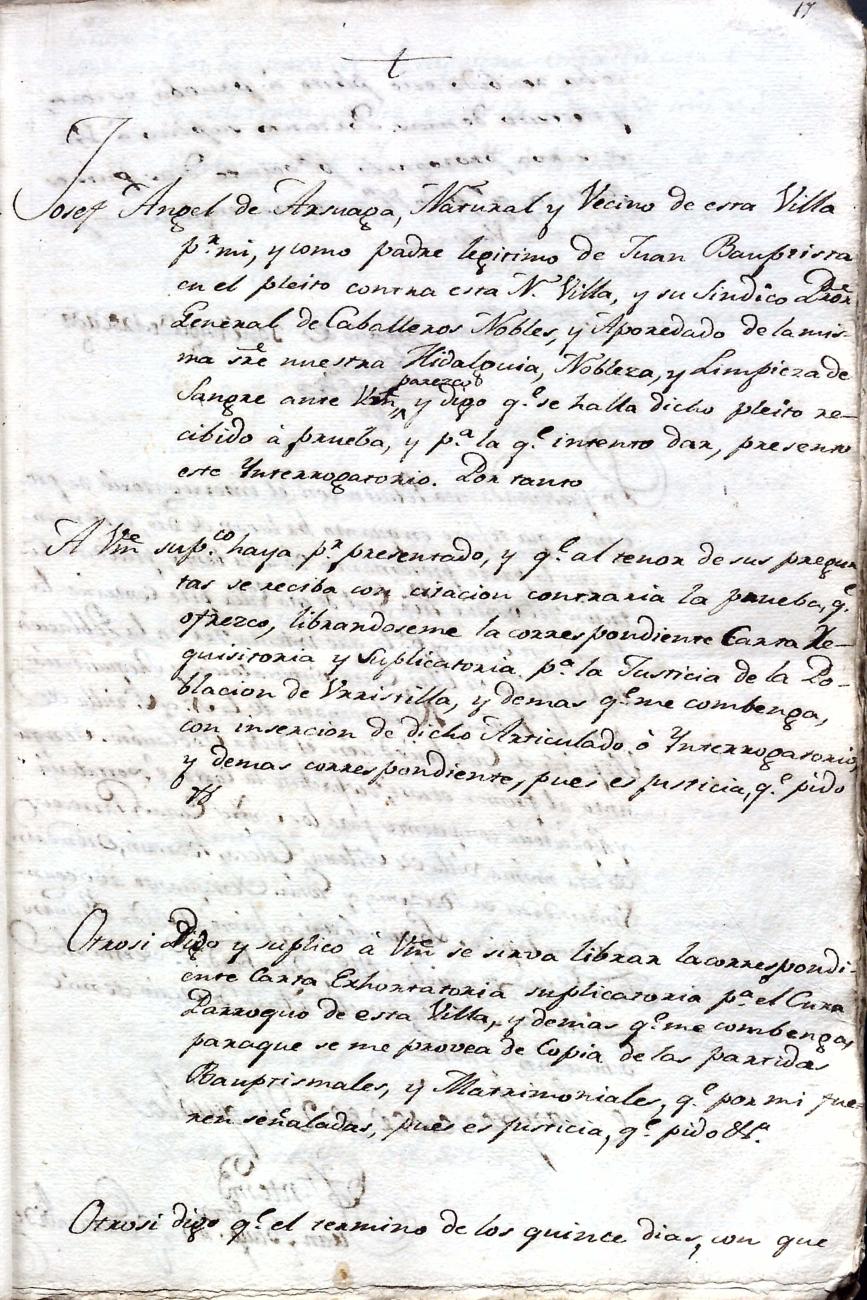 17
†
Josef Angel de Arsuaga, Natural y Vecino de esta Villa
pr mi, y como padre legitimo de Juan Bauptista
en el pleito contra esta N. Villa, y su Sindico Pror
General de Caballeros Nobles, y Aporedado de la mis-
ma sre nuestra Hidalguia, Nobleza, y Limpieza de
parezco
Sangre ante Vm, y digo qe se halla dicho pleito re-
cibido à prueba, y pa la qe intento dar, presento
este Ynterrogatorio. Por tanto
A Vm supco haya pr presentado, y qe al tenor de sus pregun
tas se reciba con citacion contraria la prueba, qe
ofrezco, librandoseme la correspondiente Carta Re-
quisitoria y Suplicatoria pa la Justicia de la Po-
blacion de Vrristilla, y demas qe me combenga,
con insercion de dicho Articulado ò Ynterrogatorio,
y demas correspondiente, pues es justicia, qe pido
&
Otrosi Digo y suplico à Vm se sirva librar la correspondi-
ente Carta Exhortatoria suplicatoria pa el Cura
Parroquo de esta Villa, y demas qe me combenga,
paraque se me provea de Copia de las partidas
Bauptismales, y Matrimoniales, qe por mi fue-
ren señaladas, pues es justicia, qe pido &a.
Otrosi digo qe el termino de los quince dias, con que